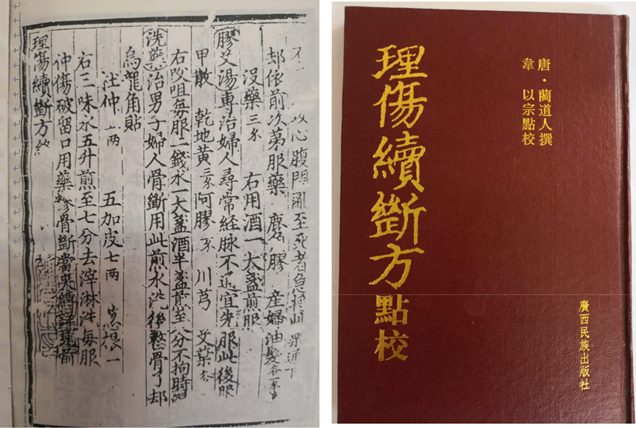 以心腹悶亂至死者急
却依前次第服藥 麝 膠 產婦油髮各
沒藥三 右用酒一大盞煎服
膠艾湯專治婦人尋常經脉不 宜先服此後服
甲散 乾地黃 阿膠 川芎 艾葉
右㕮咀每服一錢水一大盞酒半盞煎至八分不拘時
洗 治男子婦人骨斷用此煎水洗後整骨了却
烏龍角貼
一兩 五加皮七兩
右三味水五升煎至七分去滓淋洗每服
沖傷破留口用藥 骨斷當夾縛
理傷續斷方
唐·藺道人撰
韋 以宗點校
理傷續斷方點校
廣西民族出版社